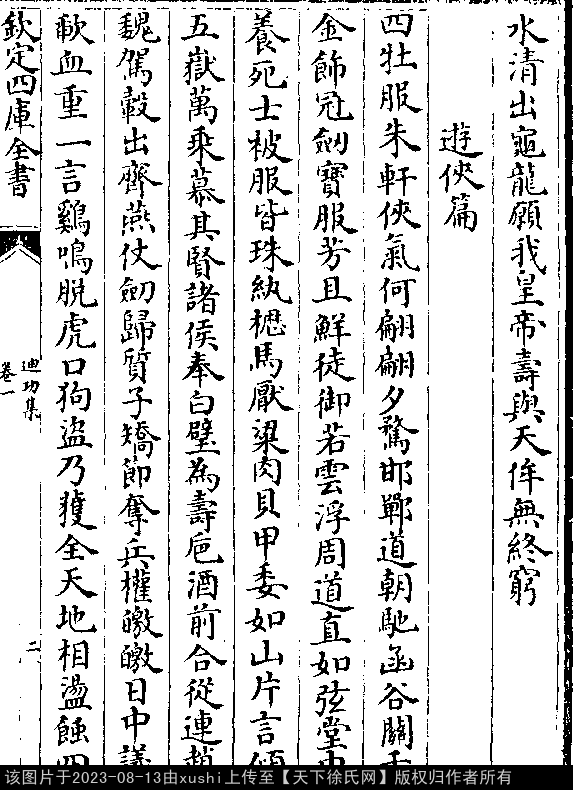 水清出龜龍願我皇帝壽與天侔無終窮
遊俠篇
四牡服朱軒俠氣何翩翩夕驁邯鄲道朝馳函谷關
金飾冠劒寶服芳且鮮徒御若雲浮周道直如弦堂中
養死士被服皆珠紈櫪馬厭粱肉貝甲委如山片言傾
五嶽萬乘慕其賢諸侯奉白璧為壽巵酒前合從連趙
魏駕轂出齊燕仗劒歸質子矯節奪兵權皦皦日中議
歃血重一言鷄鳴脫虎口狗盜乃獲全天地相盪蝕四
欽定四庫全書
迪功集
卷一
二
该图片于2023-08-13由xushi上传至【天下徐氏网】版权归作者所有